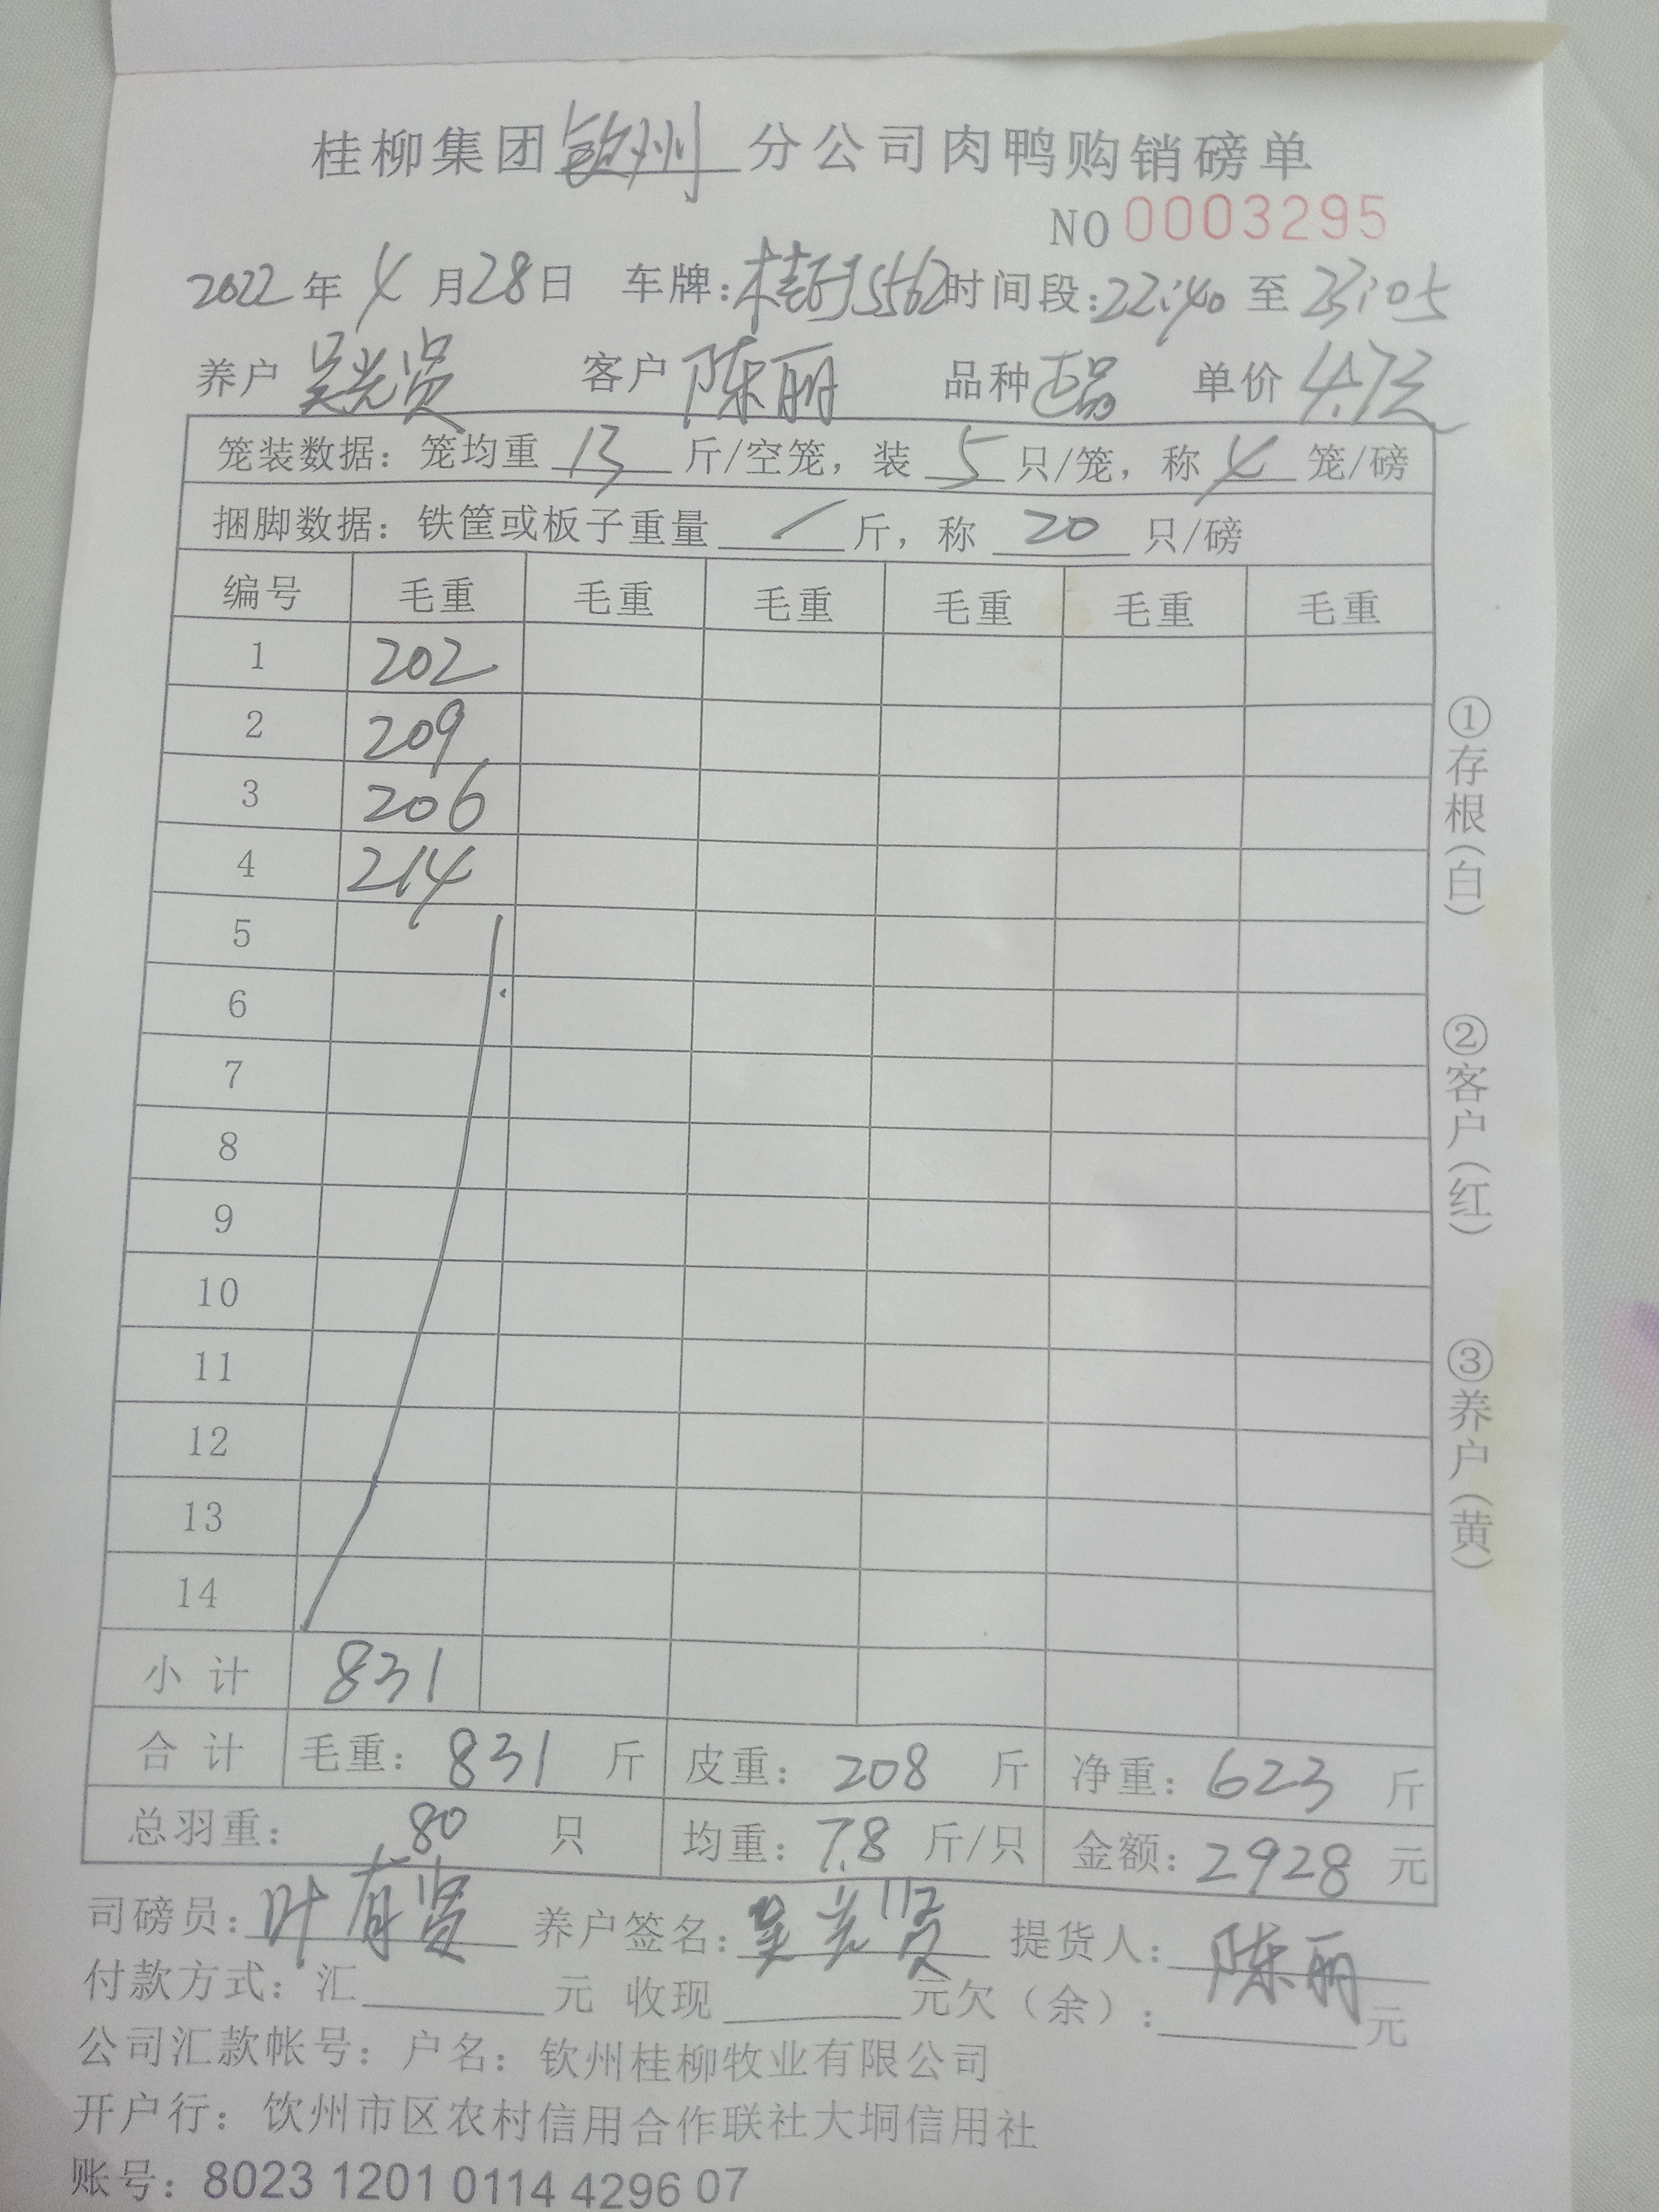 桂柳集团钦州分公司肉鸭购销磅单
NO 0003295
2022年4月28日 车牌: 时间段:22:40 至 23:05
养户 吴光贤 客户 陈丽 品种 正品 单价 4.7元
笼装数据：笼均重 13 斤/空笼，装 5 只/笼，称 4 笼/磅
捆脚数据：铁筐或板子重量 / 斤，称 20 只/磅
编号 毛重 毛重 毛重 毛重 毛重 毛重
1 202
2 209
3 206
4 214
5
6
7
8
9
10
11
12
13
14
小计 831
合计 毛重：831 斤 皮重：208 斤 净重：623 斤
总羽重：80 只 均重：7.8 斤/只 金额：2928 元
司磅员：叶有贤 养户签名：吴光贤 提货人：陈丽
付款方式：汇 元 收现 元欠（余）: 元
公司汇款帐号：户名：钦州桂柳牧业有限公司
开户行：钦州市区农村信用合作联社大垌信用社
账号：8023 1201 0114 4296 07
①存根(白)
②客户(红)
③养户(黄)